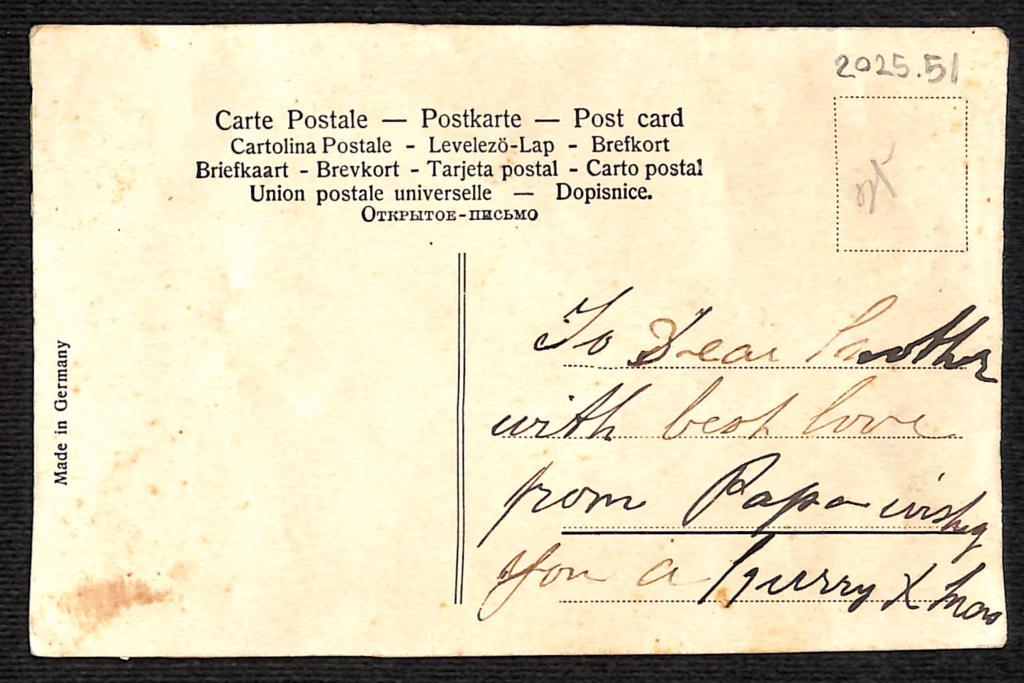 2025.51
Carte Postale — Postkarte — Post card
Cartolina Postale - Levelezö-Lap - Brefkort
Briefkaart - Brevkort - Tarjeta postal - Carto postal
Union postale universelle — Dopisnice.
Открытое-письмо
Made in Germany
To Dear
with best love
from Papa wishg
you a Murry Xmas